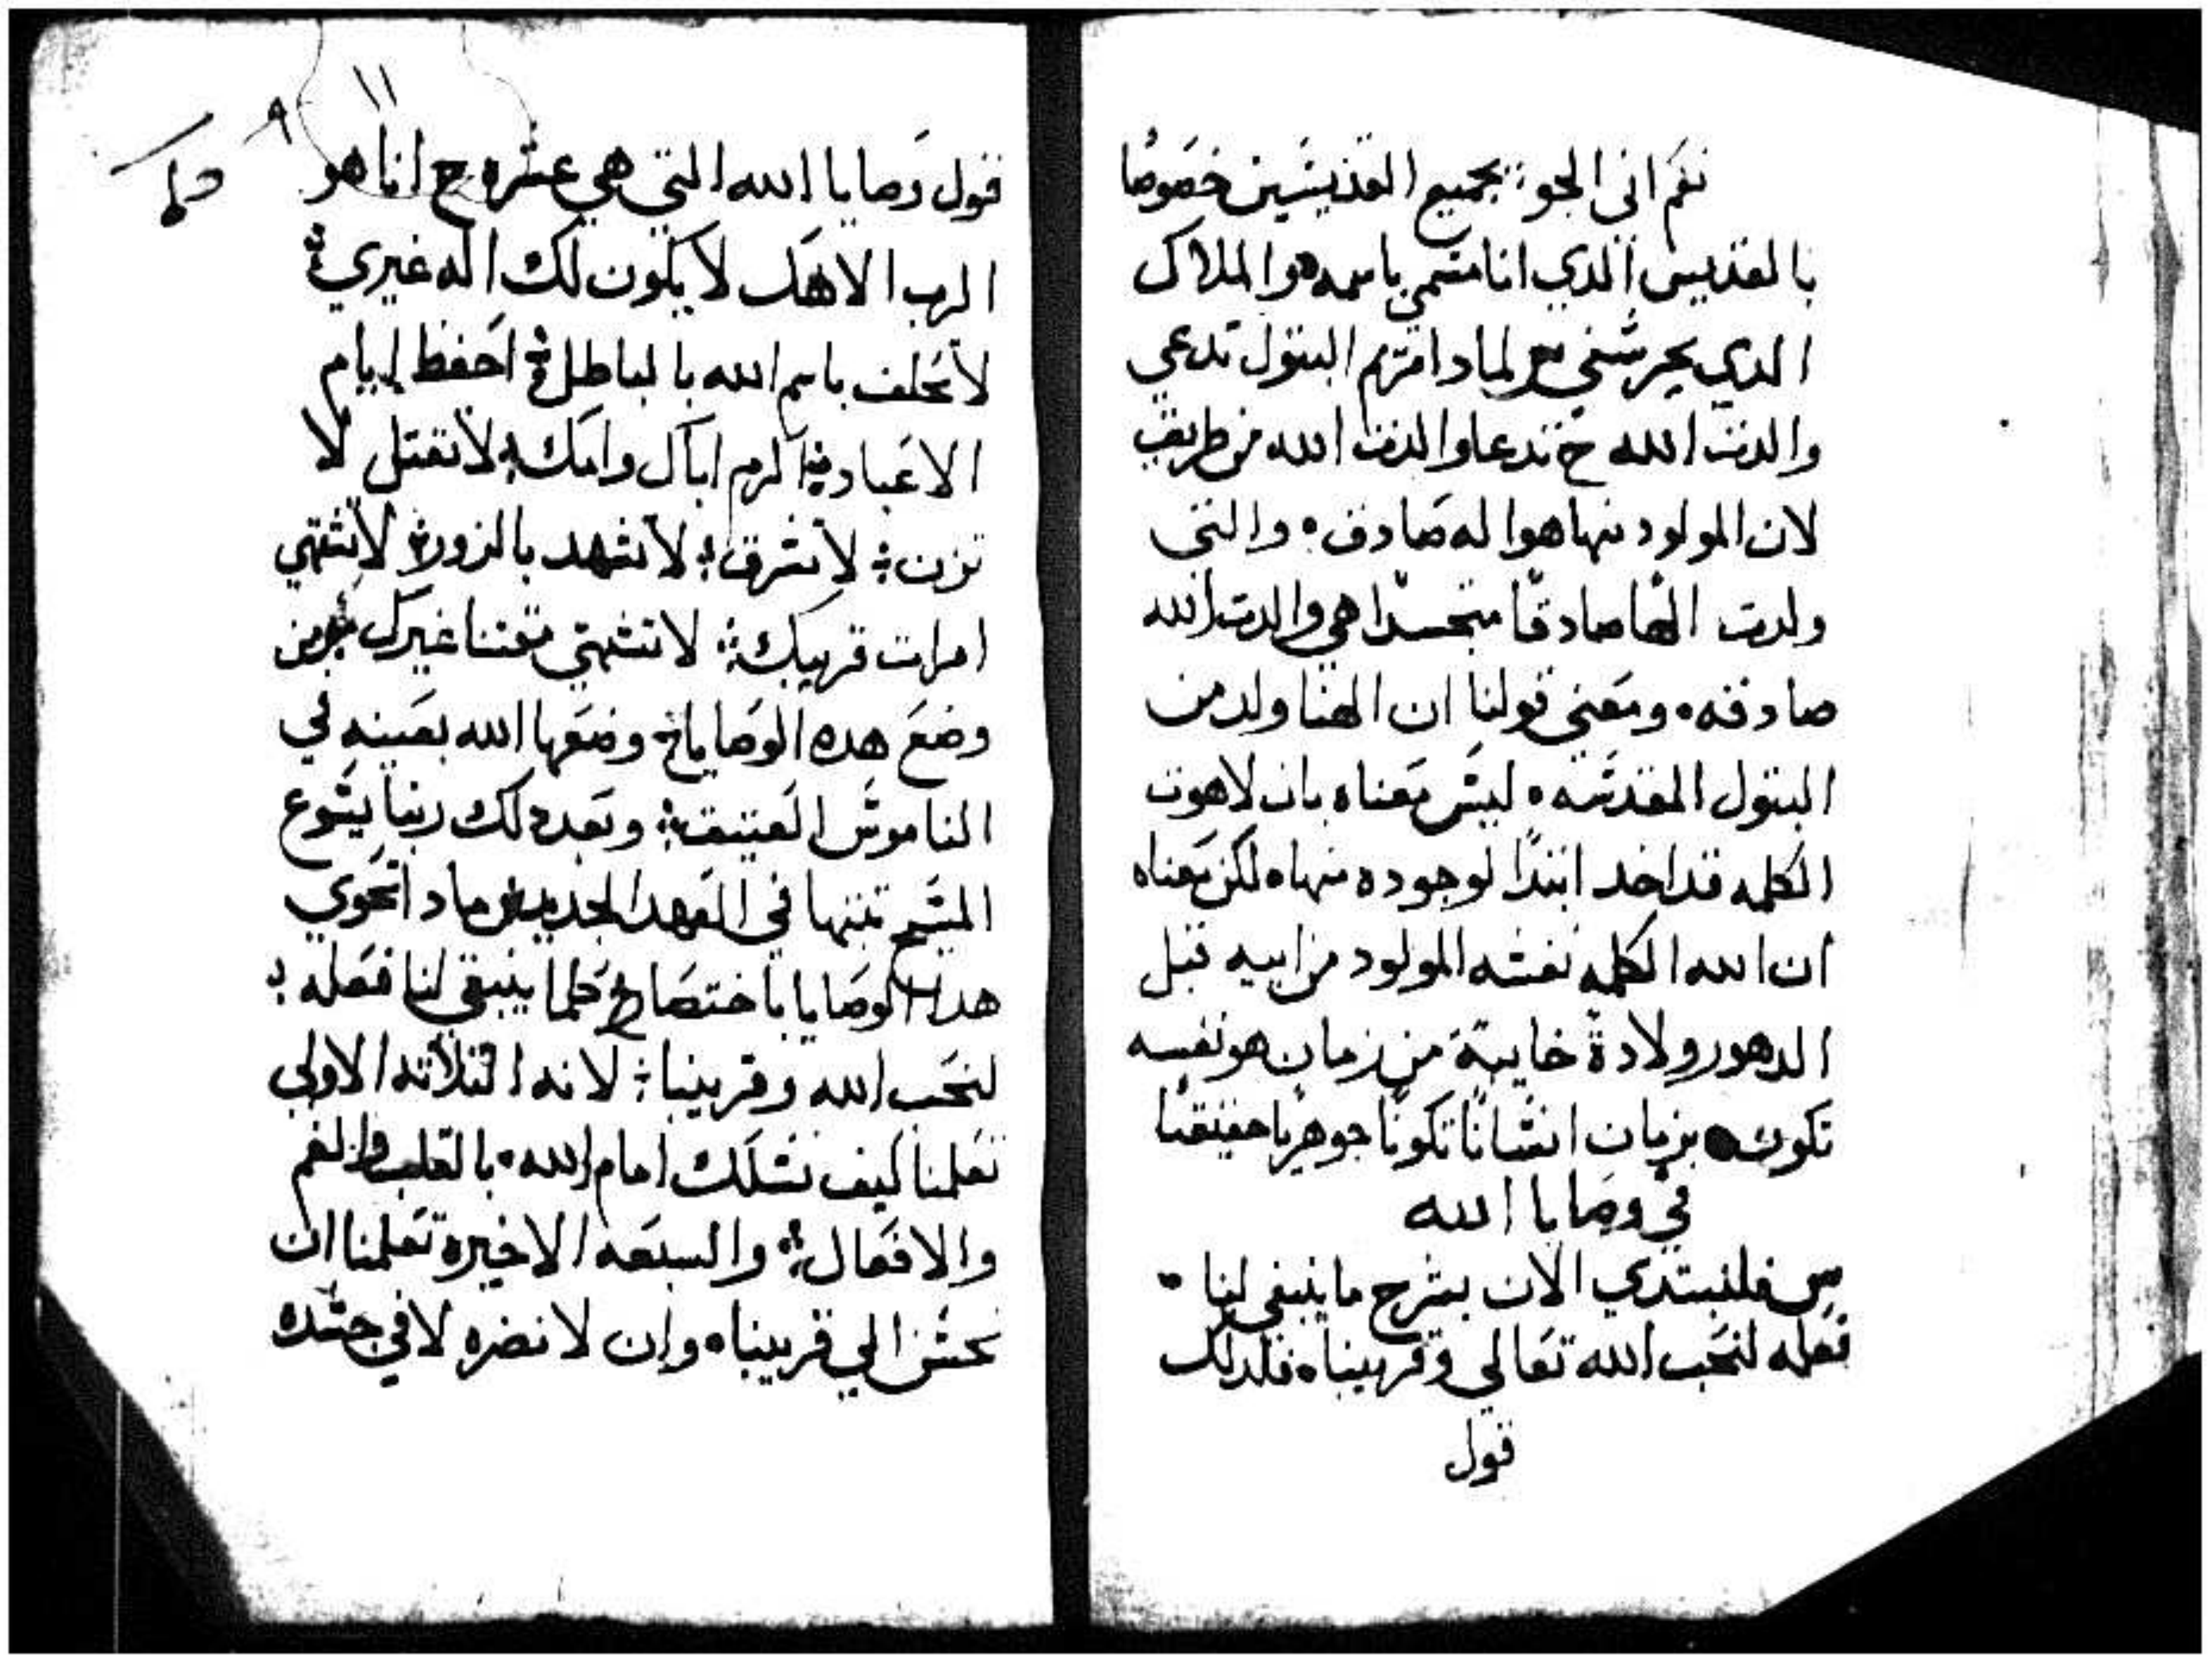 نعم اني الجو بجميع القديسين خصوصًا
بالقديس الدي انا متسمي باسمه والملاك
الدي يحرسني س لمادا مريم البتول تدعي
والدت الله ج تدعا والدت الله من طريق
لان المولود منها هوا له صادق والتي
ولدت الهًا صادقًا متجسدًا هي والدت الله
صادقه ومعني قولنا ان الهنا ولد من
البتول المقدسه ليس معناه بان لاهوت
الكلمه قد اخد ابتدًا لوجوده منها لكن معناه
ان الله الكلمه نفسه المولود من ابيه قبل
الدهور ولادة خايبة من زمان هو نفسه
تكون بزمان انسانًا تكونًا جوهريًا حقيقيًا
في وصايا الله
س فلنبتدي الان بشرح ما ينبغي لنا
فعله لنحب الله تعالي وقريبنا فلدلك
قول
١١
٩
قول وصايا الله التي هي عشره ج انا هو
الرب الاهك لا يكون لك اله غيري
لا تحلف باسم الله بالباطل احفظ ايام
الاعياد اكرم اباك وامك لا تقتل لا
تزن لا تسرق لا تشهد بالزور لا تشتهي
امرات قريبك لا تشتهي مقتنا غيرك س من
وضع هده الوصايا ج وضعها الله بعينه في
الناموس العتيق وبعد دلك ربنا يسوع
المسيح تبتها في العهد الجديد س مادا تحوي
هده الوصايا باختصار ج كلما ينبغي لنا فعله
لنحب الله وقريبنا لانه التلاته الاولي
تعلمنا كيف نسلك امام الله بالقلب والفم
والافعال والسبعه الاخيره تعلمنا ان
نحسن الي قريبنا وان لا نضره لا في جسده